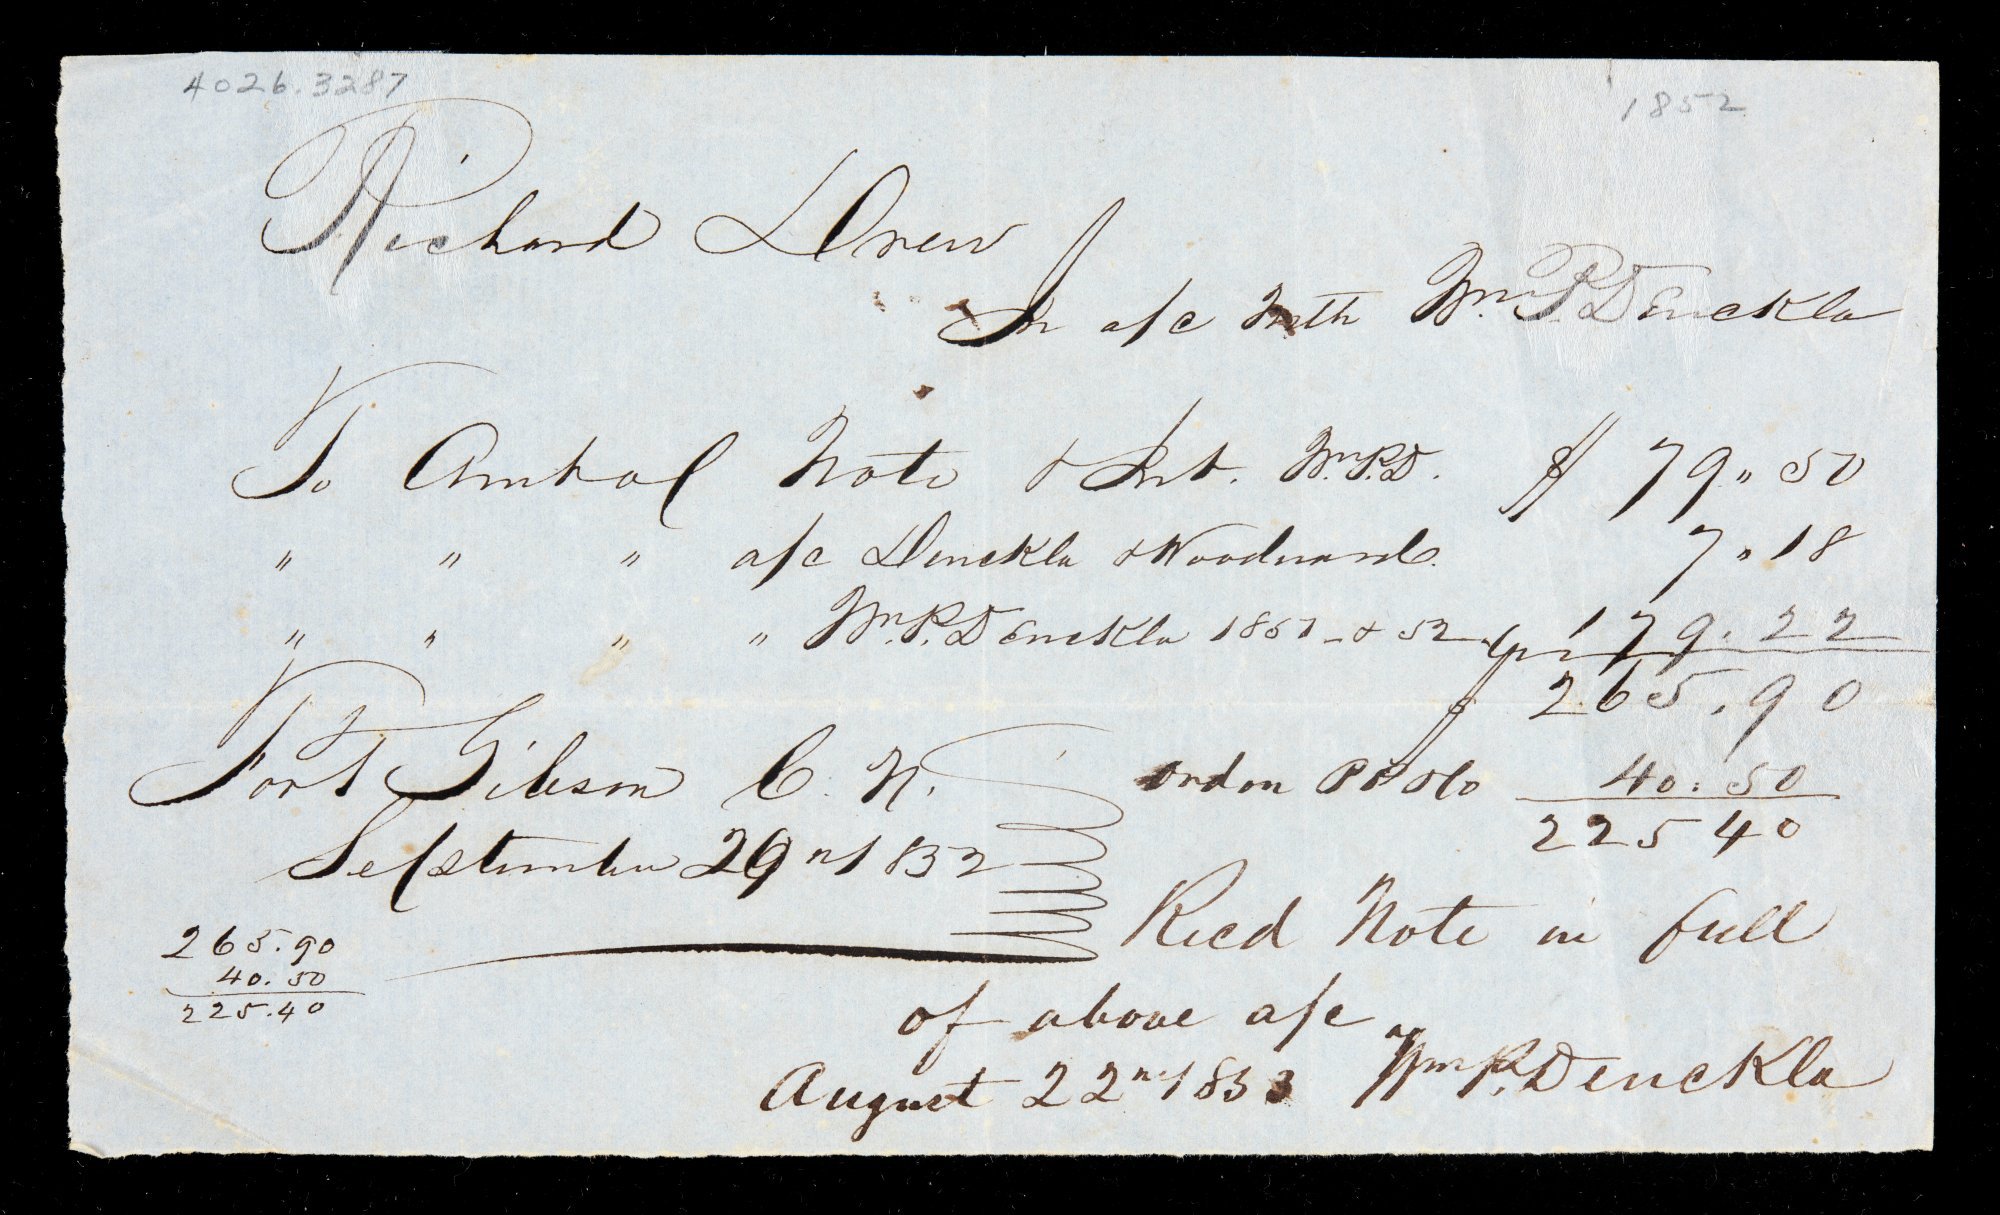 4026.3287
1852
Richard Drew
In a/c With Wm. P. Denckla
To Am't of Note & Int. Wm. P. D. $ 79 " 50
" " " a/c Denckla & Woodward. 7 " 18
" " " " Wm. P. Denckla 1851 - & 52 179.22
$ 265.90
Fort Gibson C. N. order on 40.50
225 40
September 29n 1852
265.90
40.50
225.40
Recd Note in full
of above a/c
August 22nd 1853 Wm P. Denckla